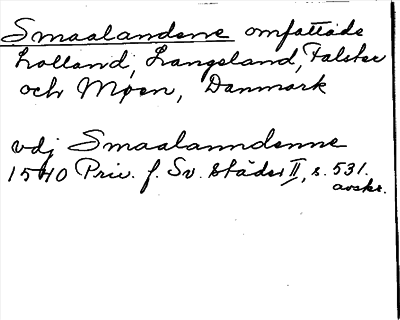 Smaalandene omfattade
Lolland, Langeland, Falster
och Møen, Danmark
vdj Smaalanndenne
1540 Priv. f. Sv. städer II, s. 531.
avskr.